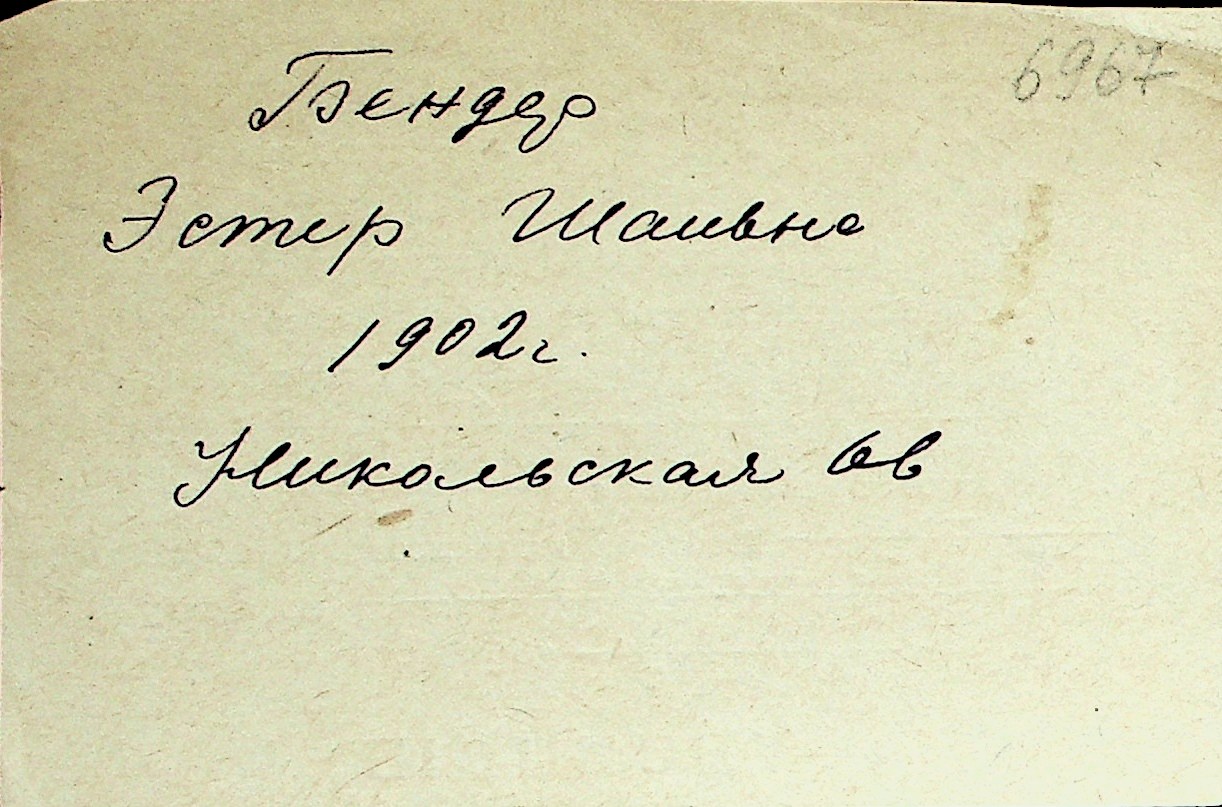 6967
Бендер
Эстер Шаивна
1902г.
Никольская 6в